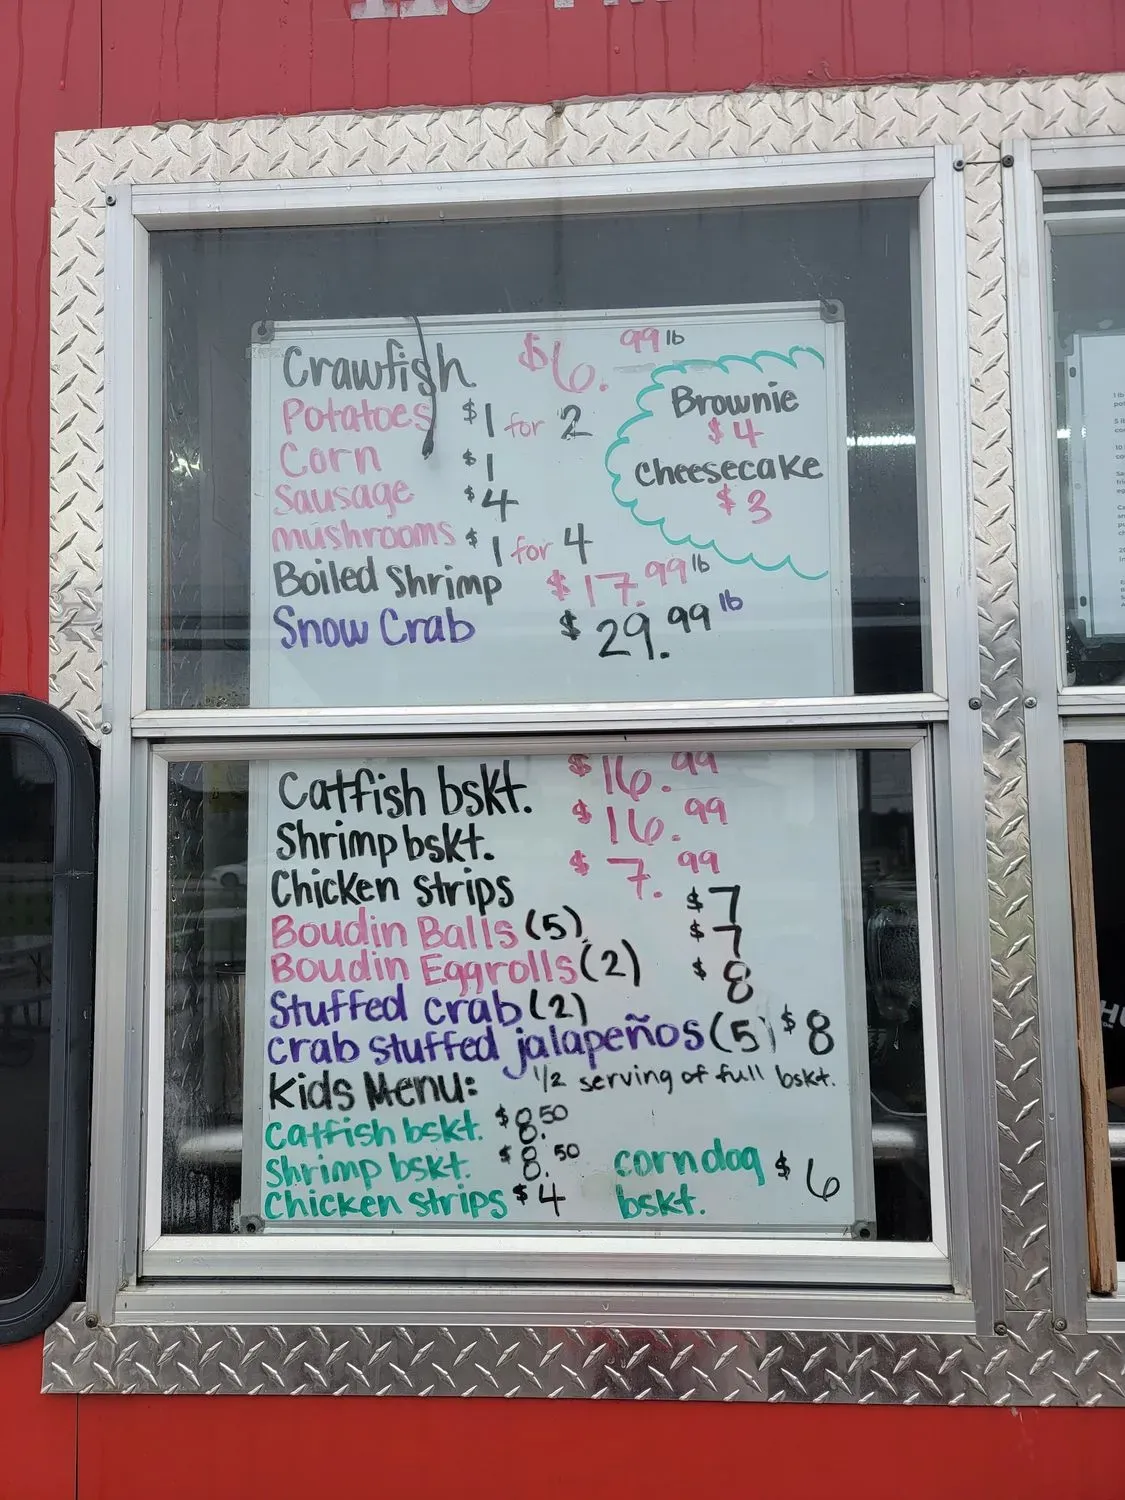 Crawfish $6.99 lb
Potatoes $1 for 2
Corn $1
Sausage $4
mushrooms $1 for 4
Boiled Shrimp $17.99 lb
Snow Crab $29.99 lb
Brownie
$4
Cheesecake
$3
Catfish bskt. $16.99
Shrimp bskt. $16.99
Chicken Strips $7.99
Boudin Balls (5) $7
Boudin Eggrolls (2) $7
Stuffed crab (2) $8
crab stuffed jalapeños (5) $8
Kids Menu: 1/2 serving of full bskt.
Catfish bskt. $8.50
Shrimp bskt. $8.50
Chicken Strips $4
corndog $6
bskt.